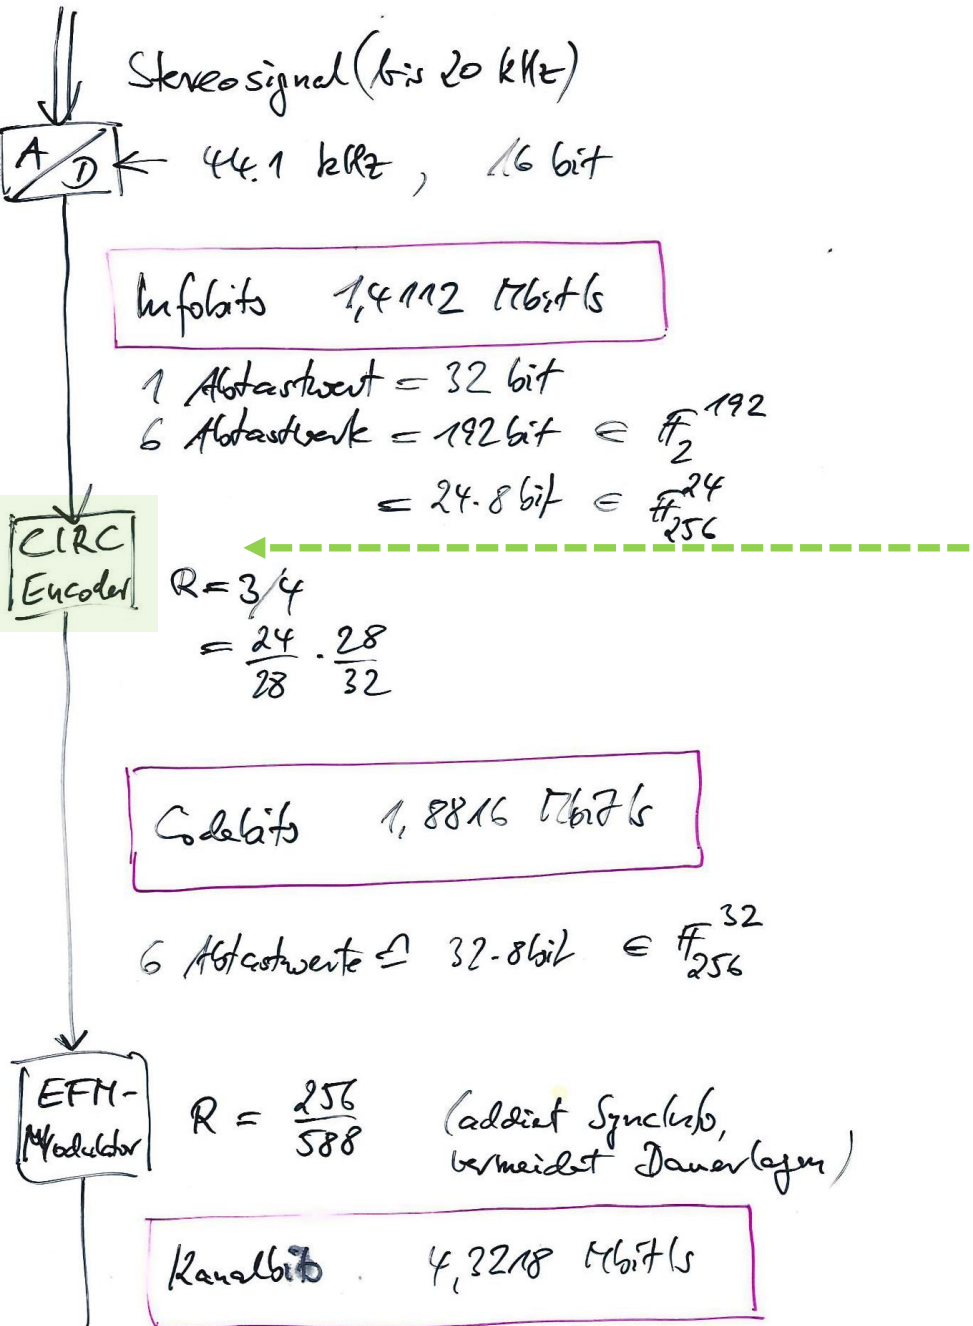 Stereosignal (bis 20 kHz)
A/D ← 44.1 kHz, 16 bit
Infobits 1,4112 Mbit/s
1 Abtastwert = 32 bit
6 Abtastwerte = 192 bit ∈ 𝔽₂¹⁹²
= 24·8 bit ∈ 𝔽₂₅₆²⁴
CIRC
Encoder
R = 3/4
= 24/28 · 28/32
Codebits 1,8816 Mbit/s
6 Abtastwerte ≙ 32·8 bit ∈ 𝔽₂₅₆³²
EFM-
Modulator
R = 256/588 (addiert SyncInfo,
vermeidet Dauerlagen)
Kanalbits 4,3218 Mbit/s